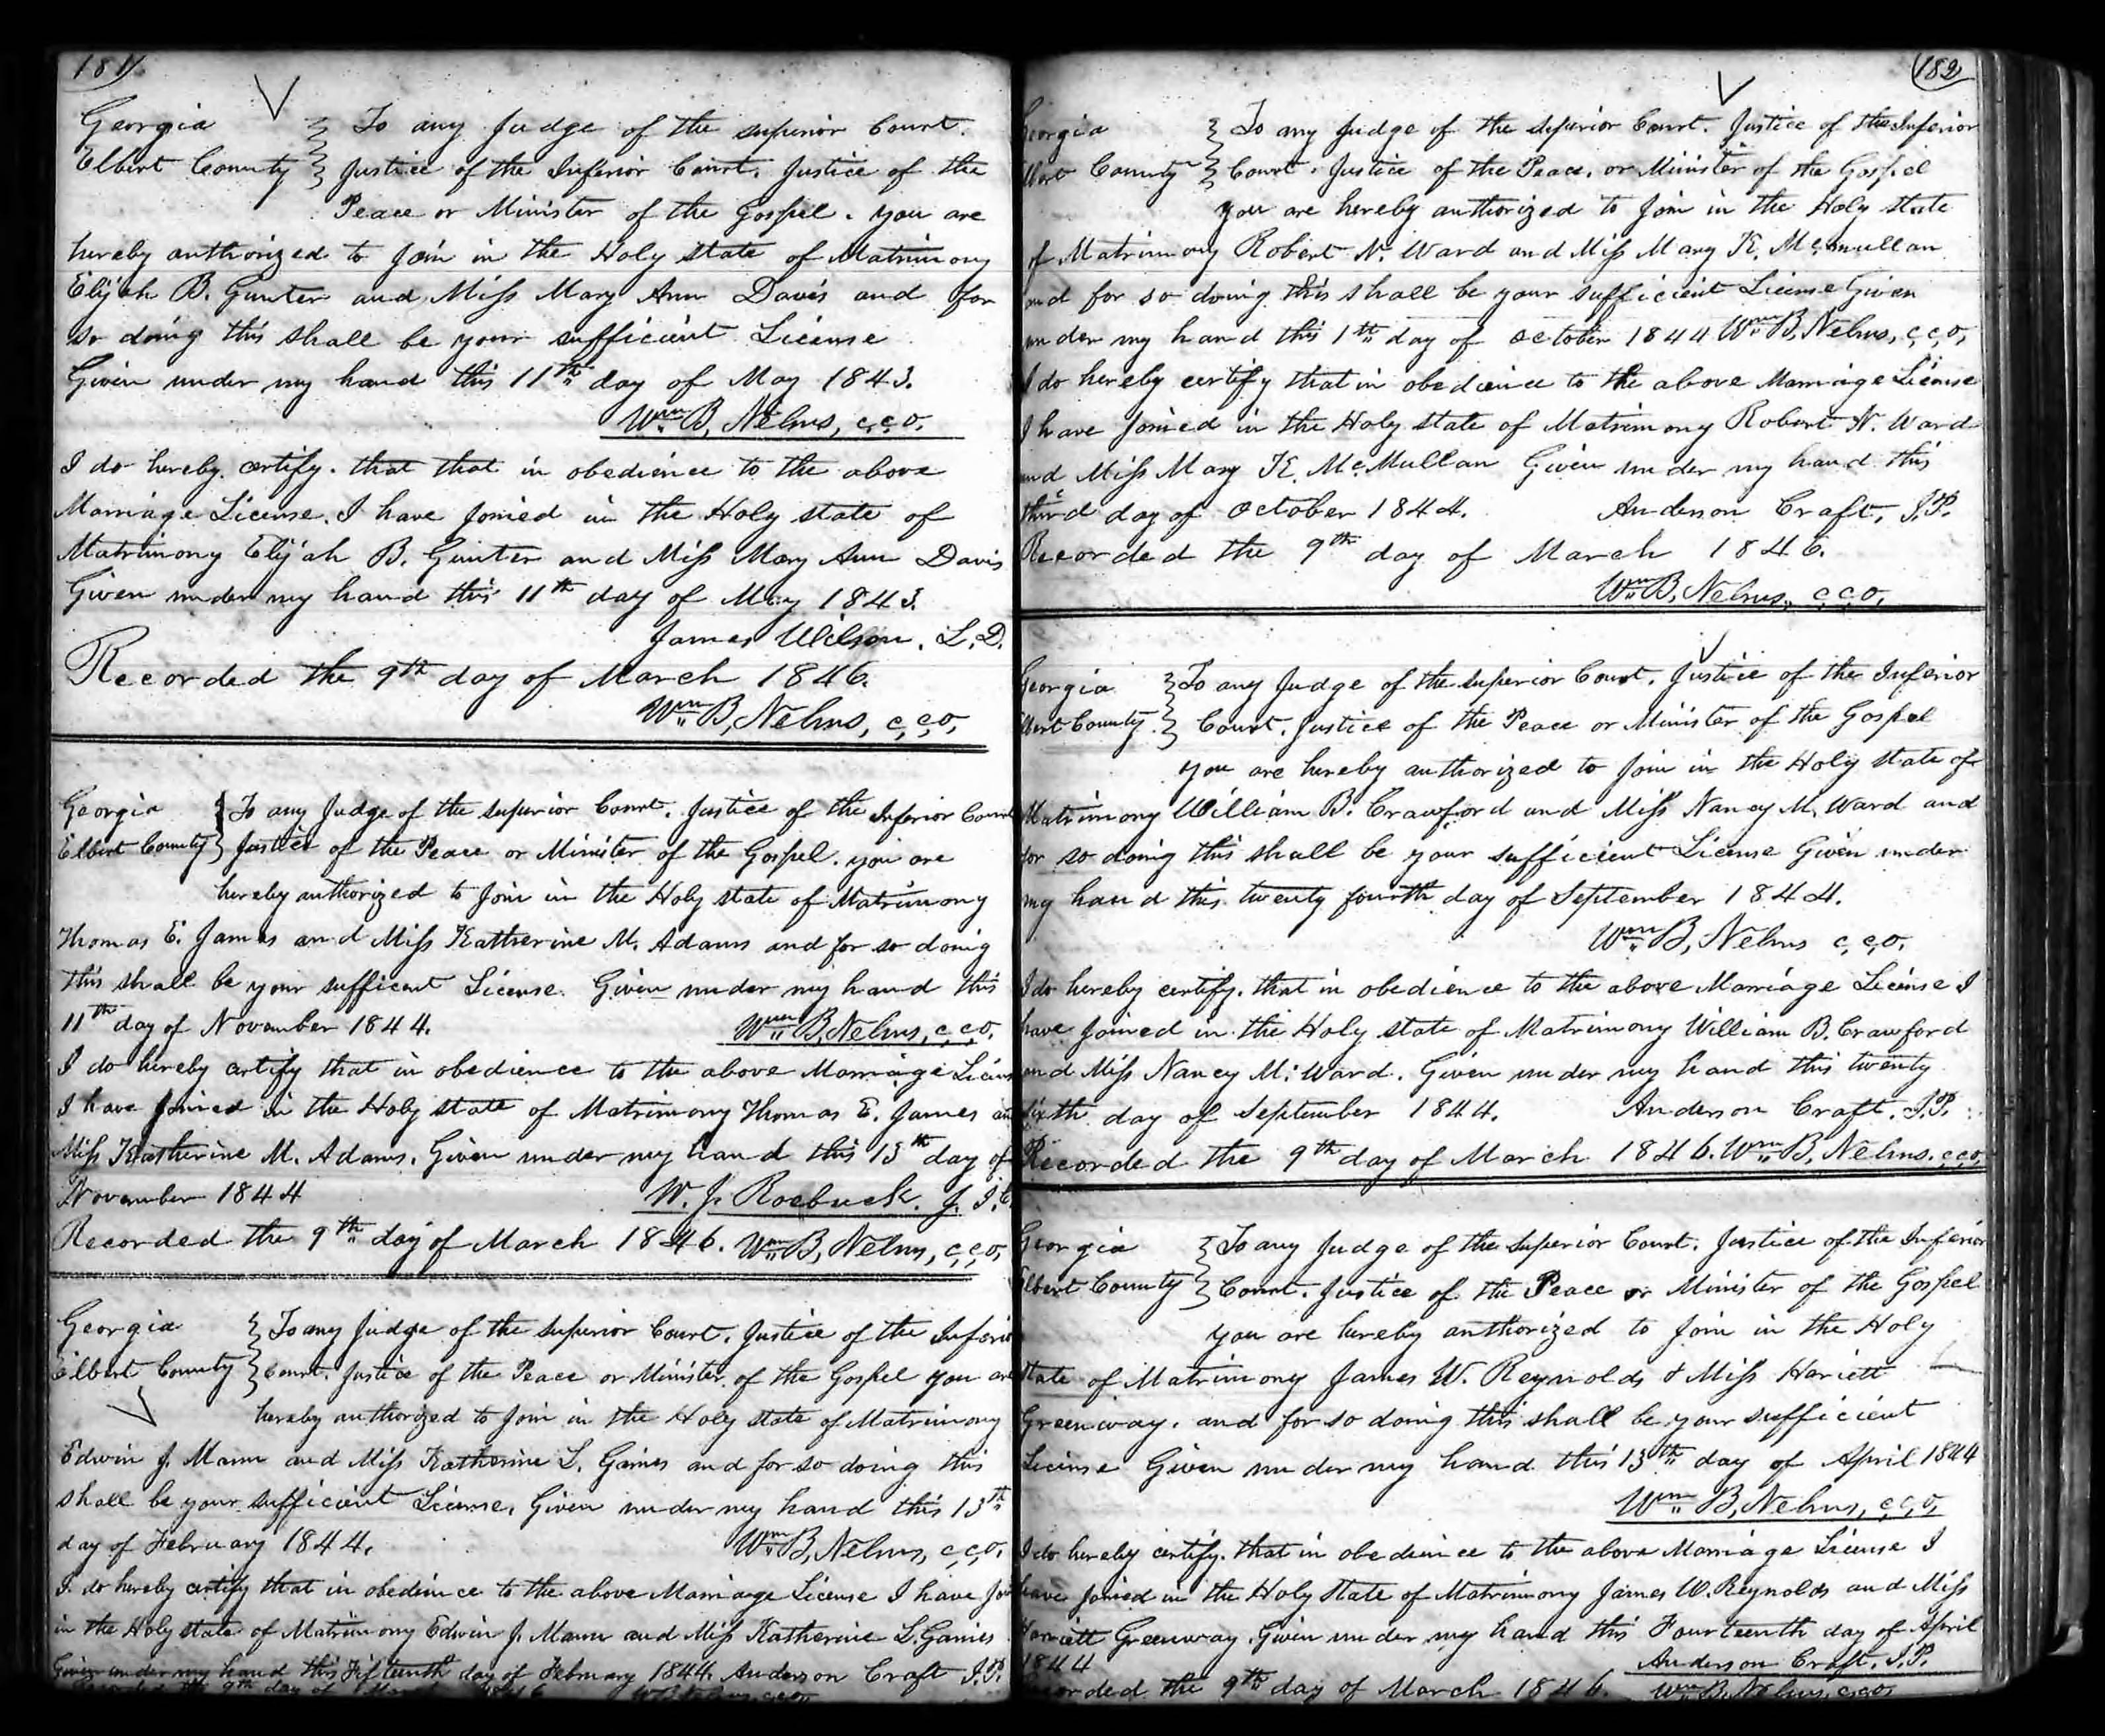 181
Georgia } To any Judge of the superior Court.
Elbert County } Justice of the Inferior Court. Justice of the
Peace or Minister of the Gospel. you are
hereby authorized to Join in the Holy state of Matrimony
Elijah B. Gunter and Miss Mary Ann Davis and for
so doing this shall be your sufficient License
Given under my hand this 11th day of May 1843.
Wm B, Nelms, c,c,o,
I do hereby certify. that that in obedience to the above
Marriage License. I have Joined in the Holy state of
Matrimony Elijah B. Gunter and Miss Mary Ann Davis
Given under my hand this 11th day of May 1843.
James Wilson. L.D.
Recorded the 9th day of March 1846.
Wm B, Nelms, c,c,o,
Georgia } To any Judge of the superior Court. Justice of the Inferior Court
Elbert County } Justice of the Peace or Minister of the Gospel. you are
hereby authorized to Join in the Holy state of Matrimony
Thomas E. James and Miss Katherine M. Adams and for so doing
this shall be your sufficent License. Given under my hand this
11th day of November 1844. Wm B, Nelms, c,c,o,
I do hereby certify that in obedience to the above Marriage Licens
I have Joined in the Holy state of Matrimony Thomas E. James an
Miss Katherine M. Adams. Given under my hand this 13th day of
November 1844 W. J. Roebuck. J. I. C
Recorded the 9th day of March 1846. Wm B, Nelms, c,c,o,
Georgia } To any Judge of the superior Court. Justice of the Inferio
Elbert County } Court. Justice of the Peace or Minister of the Gospel you are
hereby authorized to Join in the Holy state of Matrimony
Edwin J. Mann and Miss Katherine L. Gaines and for so doing this
shall be your sufficient License. Given under my hand this 13th
day of February 1844. Wm B, Nelms, c,c,o,
I do hereby certify that in obedience to the above Marriage License I have Joi
in the Holy state of Matrimony Edwin J. Mann and Miss Katherine L. Gaines
Given under my hand this Fifteenth day of February 1844. Anderson Craft J.P.
Recorded the 9th day of March 1846 Wm B Nelms, c,c,o,
182
eorgia } To any Judge of the superior Court. Justice of the Inferior
lbert County } Court. Justice of the Peace, or Minister of the Gospel
you are hereby authorized to Join in the Holy state
of Matrimony Robert N. Ward and Miss Mary K. Mc.mullan
and for so doing this shall be your sufficient License Given
under my hand this 1th day of October 1844 Wm B, Nelms, c,c,o,
I do hereby certify that in obedience to the above Marriage License
I have Joined in the Holy state of Matrimony Robert N. Ward
and Miss Mary K. McMullan Given under my hand this
third day of October 1844. Anderson Craft, J.P.
Recorded the 9th day of March 1846.
Wm B, Nelms, c,c,o,
Georgia } To any Judge of the superior Court. Justice of the Inferior
lbert County } Court. Justice of the Peace or Minister of the Gospel
you are hereby authorized to Join in the Holy state of
Matrimony William B. Crawford and Miss Nancy M. Ward and
for so doing this shall be your sufficient License Given under
my hand this twenty fourth day of September 1844.
Wm B, Nelms c,c,o,
I do hereby certify. that in obedience to the above Marriage License I
have Joined in the Holy state of Matrimony William B. Crawford
and Miss Nancy M. Ward. Given under my hand this twenty
sixth day of September 1844. Anderson Craft. J.P.
Recorded the 9th day of March 1846. Wm B, Nelms. c,c,o,
Georgia } To any Judge of the superior Court. Justice of the Inferior
lbert County } Court. Justice of the Peace or Minister of the Gospel
you are hereby authorized to Join in the Holy
state of Matrimony James W. Reynolds & Miss Hariett
Greenway. and for so doing this shall be your sufficient
License Given under my hand this 13th day of April 1844
Wm B, Nelms, c,c,o,
I do hereby certify. that in obedience to the above Marriage License I
have Joined in the Holy state of Matrimony James W. Reynolds and Miss
Harriett Greenway. Given under my hand this Fourteenth day of April
1844 Anderson Craft. J.P.
corded the 9th day of March 1846. Wm B, Nelms, c,c,o,